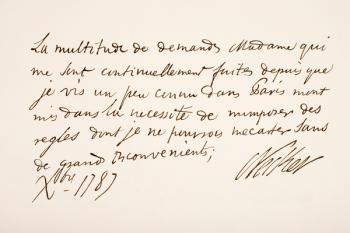 La multitude de demandes Madame qui
me sont continuellement faites depuis que
je vis un peu connu dans Paris m'ont
mis dans la necessité de m'imposer des
regles dont je ne pourrois m'ecarter sans
de grands inconvenients;
Xbre 1787 Necker